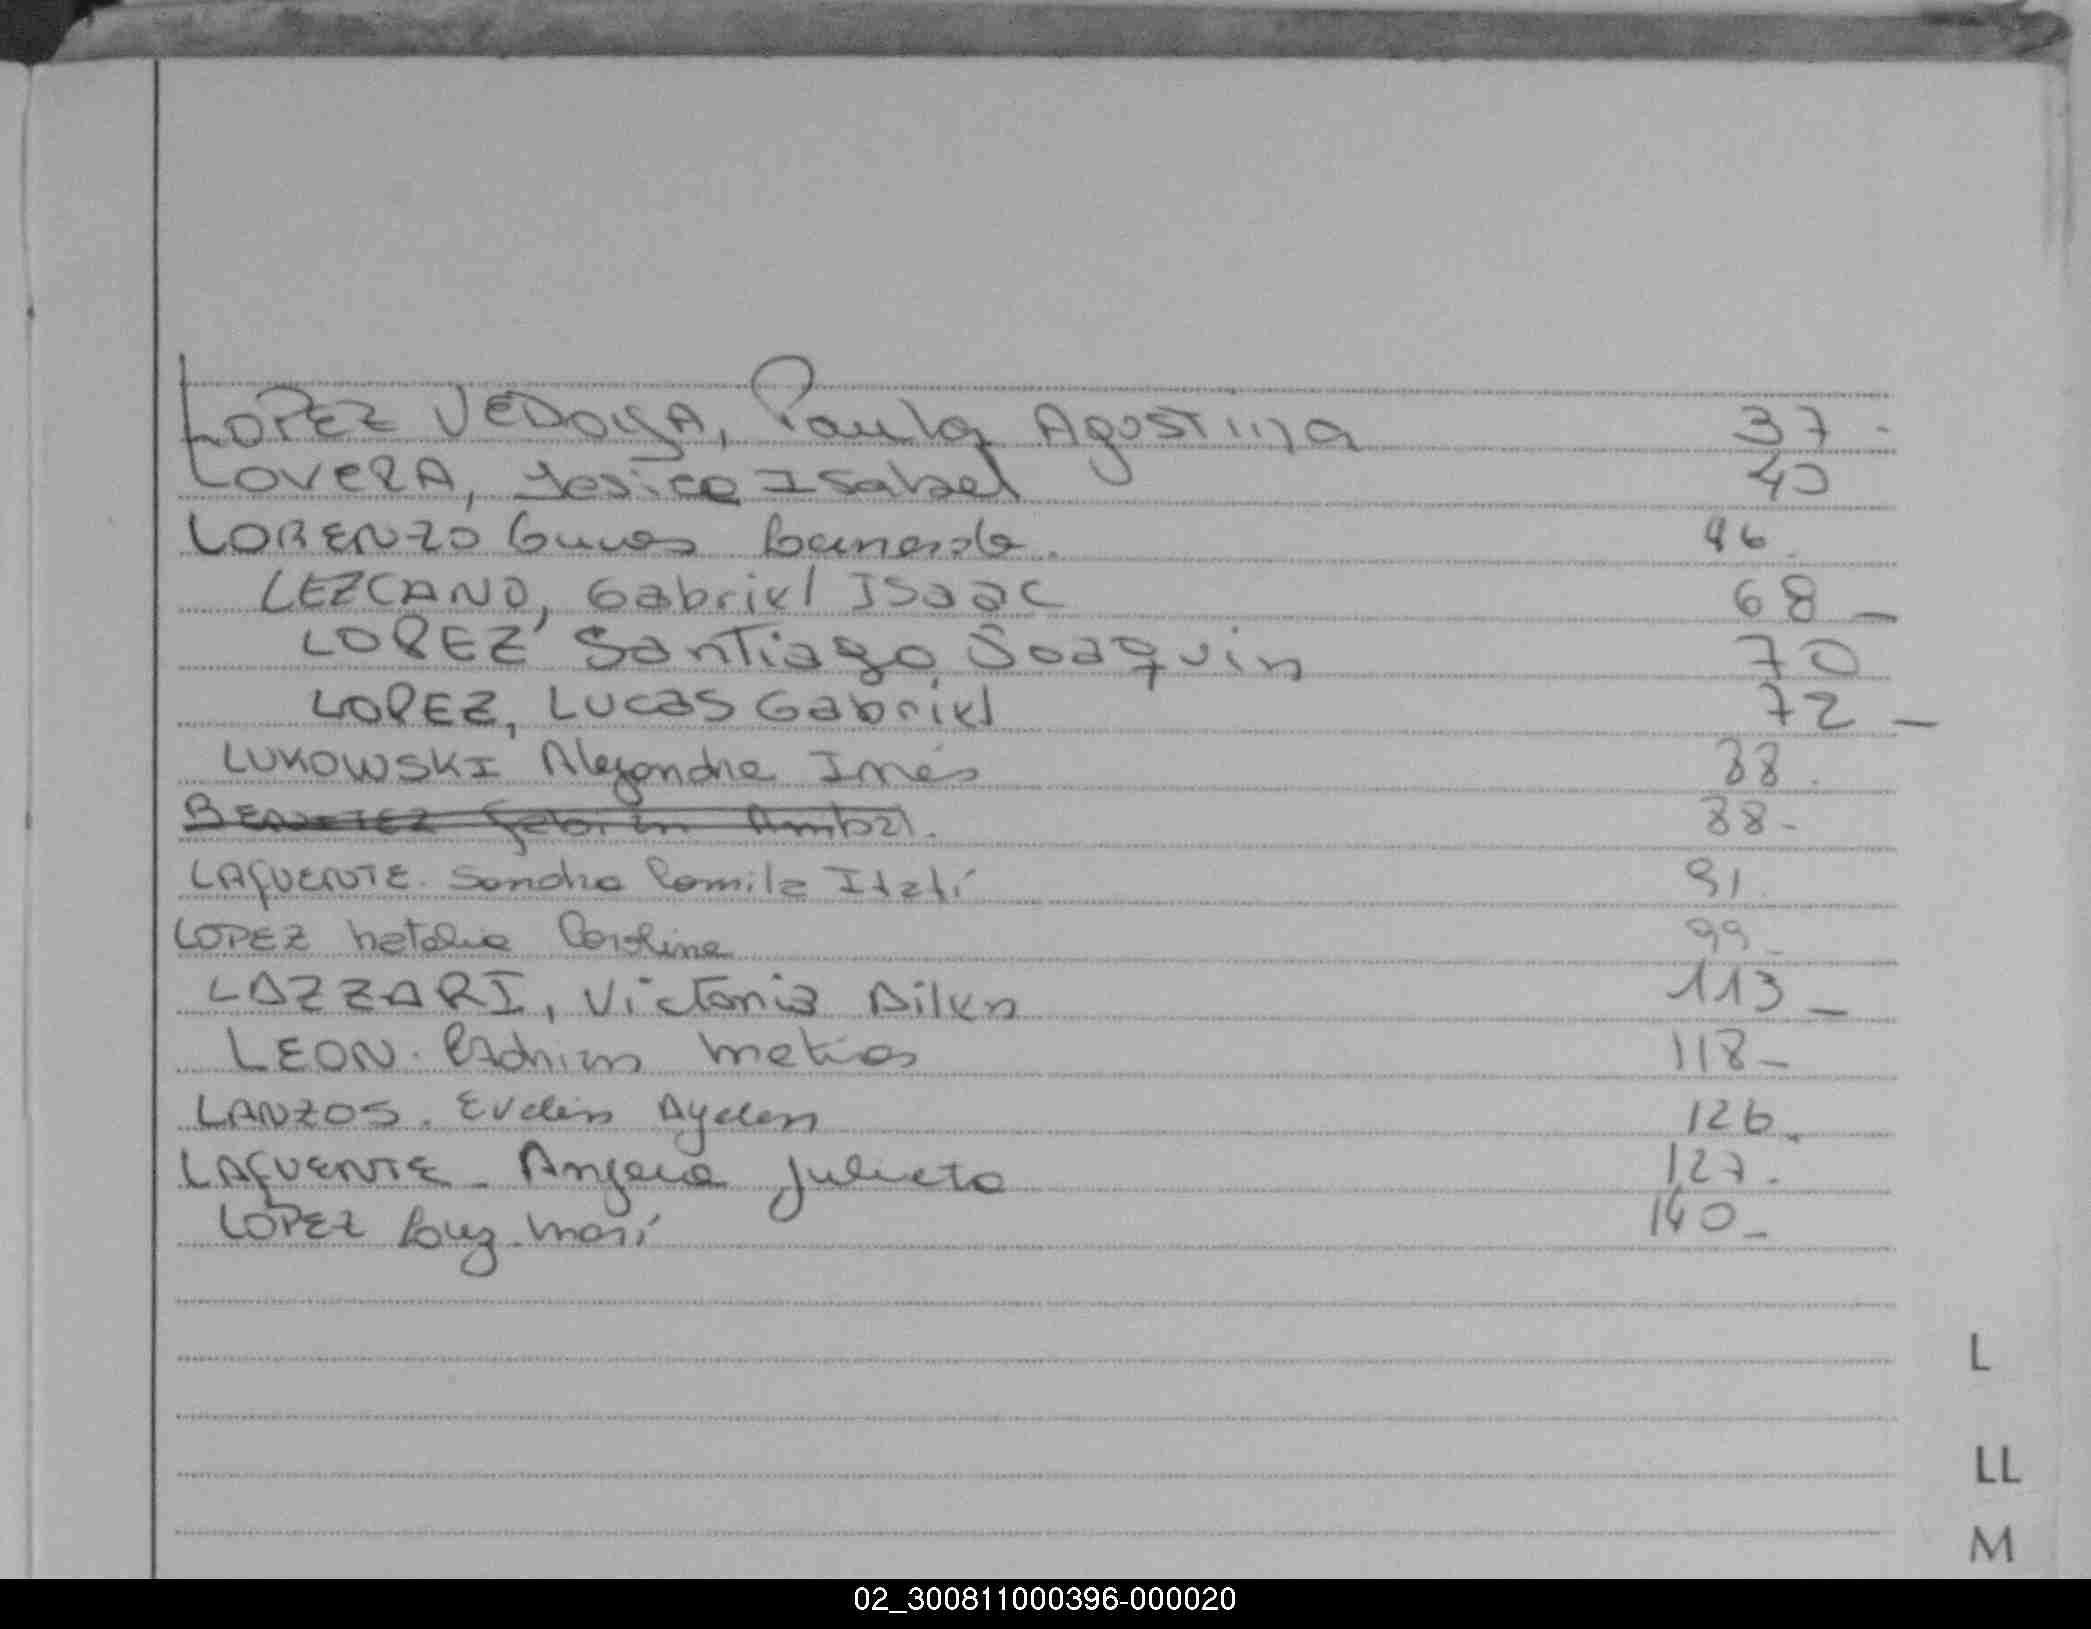 LOPEZ VEDOYA, Paula Agostina 37-
LOVERA, Yesica Isabel 40
LORENZO 46.
LEZCANO, Gabriel ISaac 68_
LOPEZ Santiago Joaquin 70
LOPEZ, Lucas Gabriel 72_
LUKOWSKI Alejandra Inés 88.
BENITEZ 88-
LAFUENTE. Sandra Camila Itatí 91.
LOPEZ Natalia Carolina 99-
LAZZARI, Victoria Ailen 113_
LEON. Adrian Matias 118-
LANZOS. Evelin Ayelen 126.
LAFUENTE- Angela Julieta 127.
LOPEZ Luz Mari 140-
L
LL
M
02_300811000396-000020